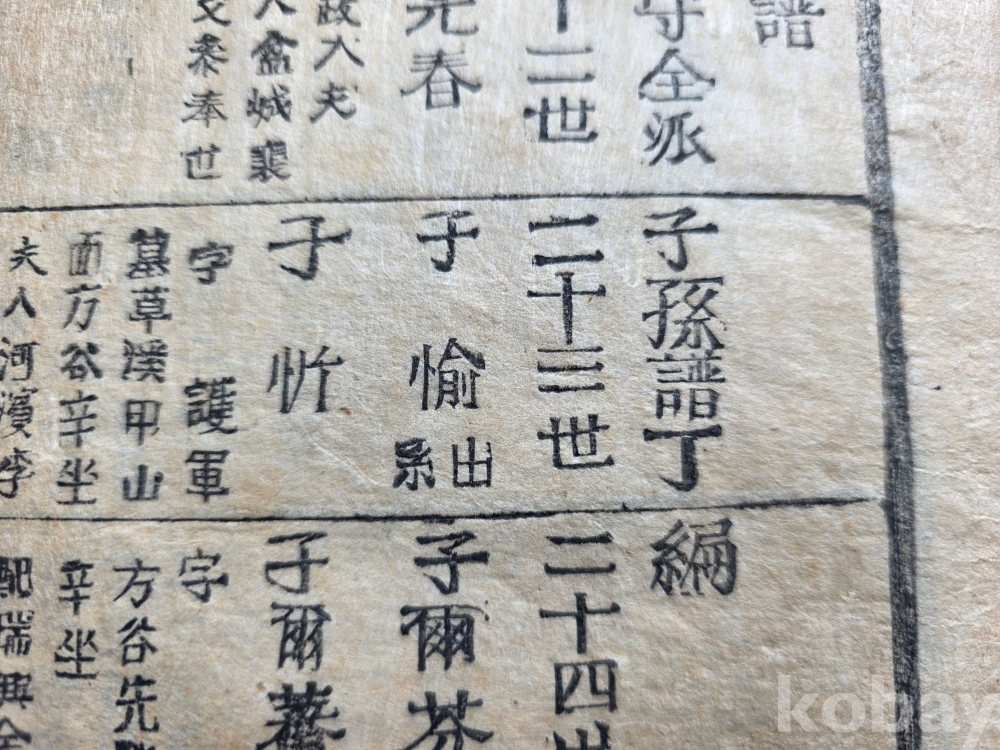 譜
守全派
十二世
光春
政大夫
人盆城裵
奉世
子孫譜丁
二十三世
子愉
出
系
子忻
字 護軍
墓草溪甲山
面方谷辛坐
夫人河濱李
編
二十四世
子爾芬
子爾
字
方谷先
辛坐
配瑞興金
kobay